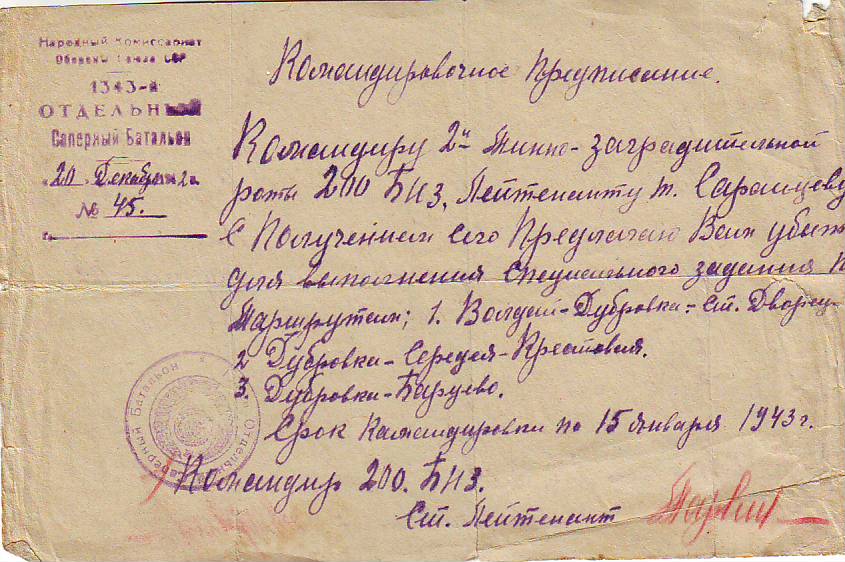 Народный Комиссариат
Обороны Союза ССР
1343-й
ОТДЕЛЬНЫЙ
Саперный Батальон
"20" Декабря 2 г.
№ 45.
г.
Командировочное Предписание.
Командиру 2й Минно-заградительной
роты 200 БИЗ. Лейтенанту т. Саранцеву
С Получением сего Предлагаю Вам убыть
для выполнения специального задания п
Маршрутам; 1. Валдай-Дубровка-ст. Дворец
2 Дубровка-Середея-Крестовая.
3. Дубровка-
Срок Командировки по 15 января 1943 г.
Командир 200. БИЗ.
Ст. Лейтенант
Саперный Батальон * Отдельный